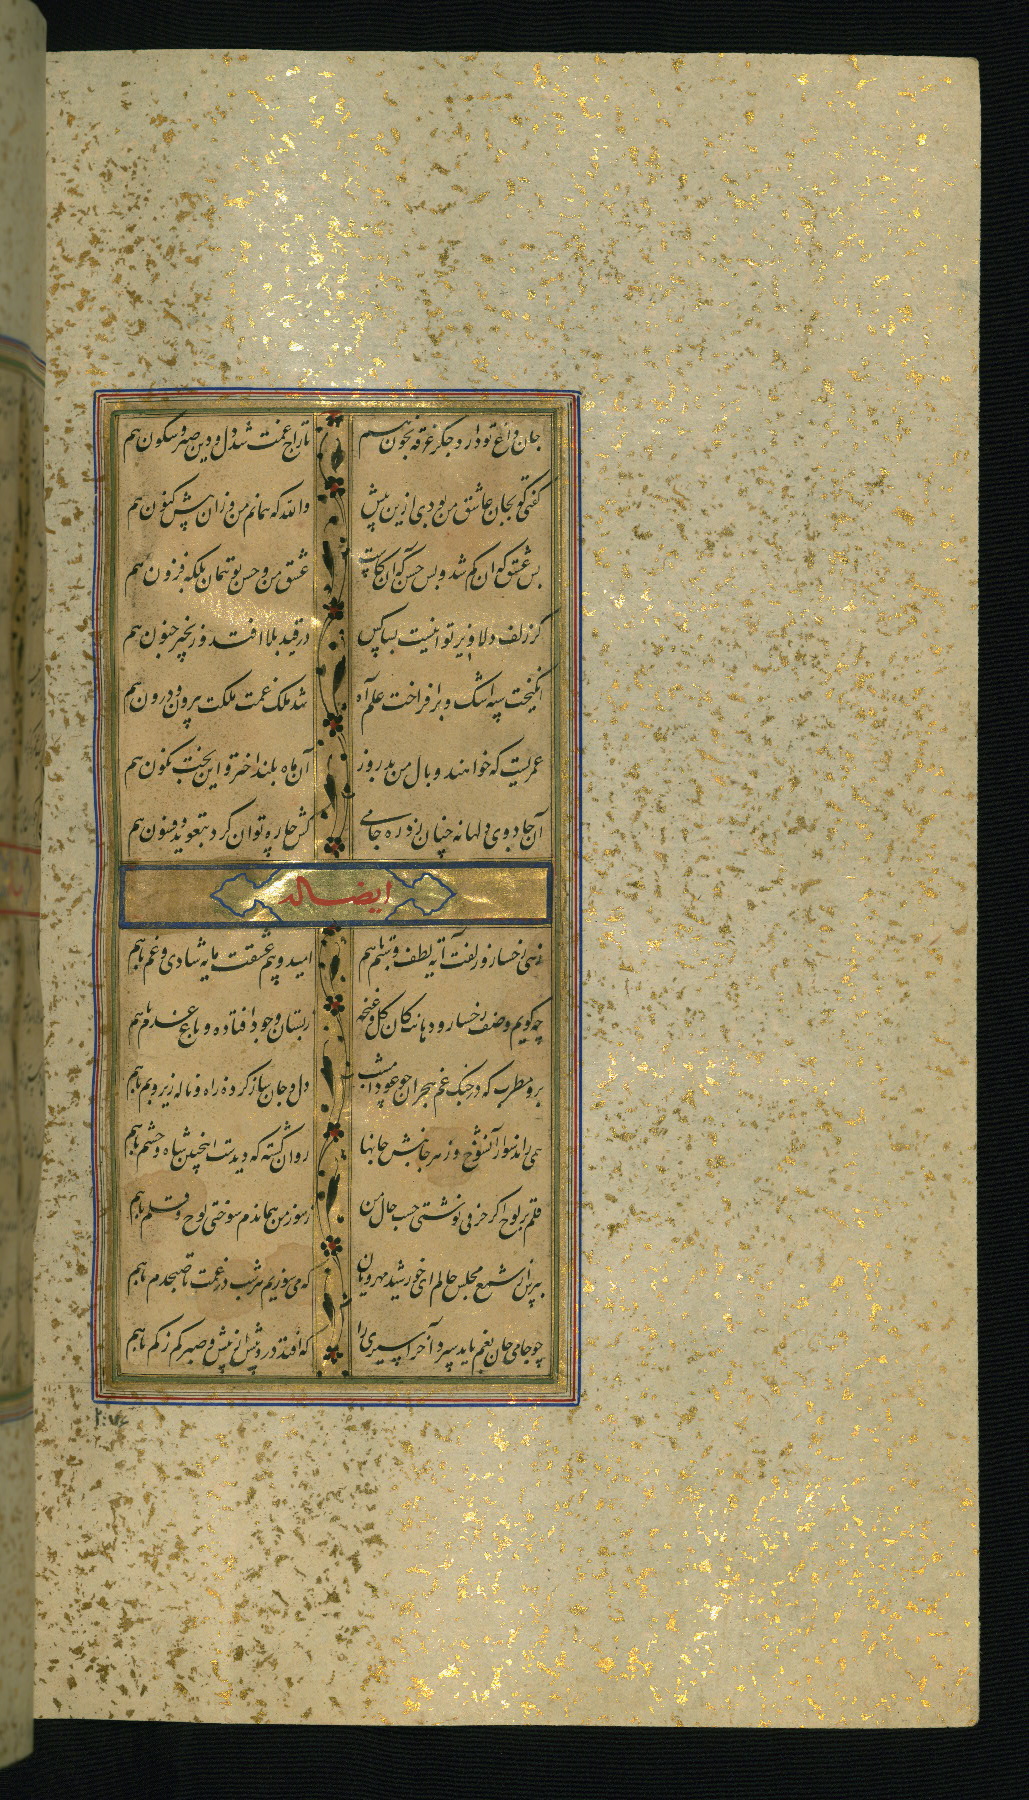 جان داغ تو دارد جگر غرقه بخون هم تاراج غمت شد دل و دین صبر و سکون هم
کفتی تو بجان عاشق من بودی ازین پیش والله که همانم من وزان پیش کنون هم
بس عشق که آن کم شد و بس حسن که آن کاست عشق من و حسن تو همان بلکه فزون هم
کز زلف دلاویز تو اینست بسا کس در قید بلا افتد و زنجیر جنون هم
انکیخت سپه اشک و برافراخت علم آه شد ملک غمت مملکت برون و درون هم
عمریست که خواهند وبال من بدروز آن ماه بلند اختر و این بخت نکون هم
آن جادوی دلها نه چنان زد ره جامی کش چاره توان کرد بتعوید و فسون هم
ایضا له
زهی رخسار و زلفت آیه لطف و ستم باهم امید و بیم عشقت مایه شادی و غم باهم
چه کویم وصف رخسار و دهانت کان کل و غنچه ز بستان وجود افتاده و باغ عدم باهم
برو مطرب که در چنک غم هجران چو عود امشب دل و جان ساز کرده راه و ناله زیر و بم باهم
همی راند سوار آن شوخ وز هر جانبش جانها روان کشته که دیدست اینچنین شاه و حشم باهم
قلم بر لوح اکر حرفی نوشتی حسب حال من ز سوز من هماندم سوختی لوح و قلم باهم
بپرس از شمع مجلس حالم ای خورشید مهرویان که می سوزیم هر شب در غمت تا صبحدم باهم
چو جامی جان بغم باید سپرد آخر اسیری را که افتد درد بیش از بیش و صبر کم ز کم باهم